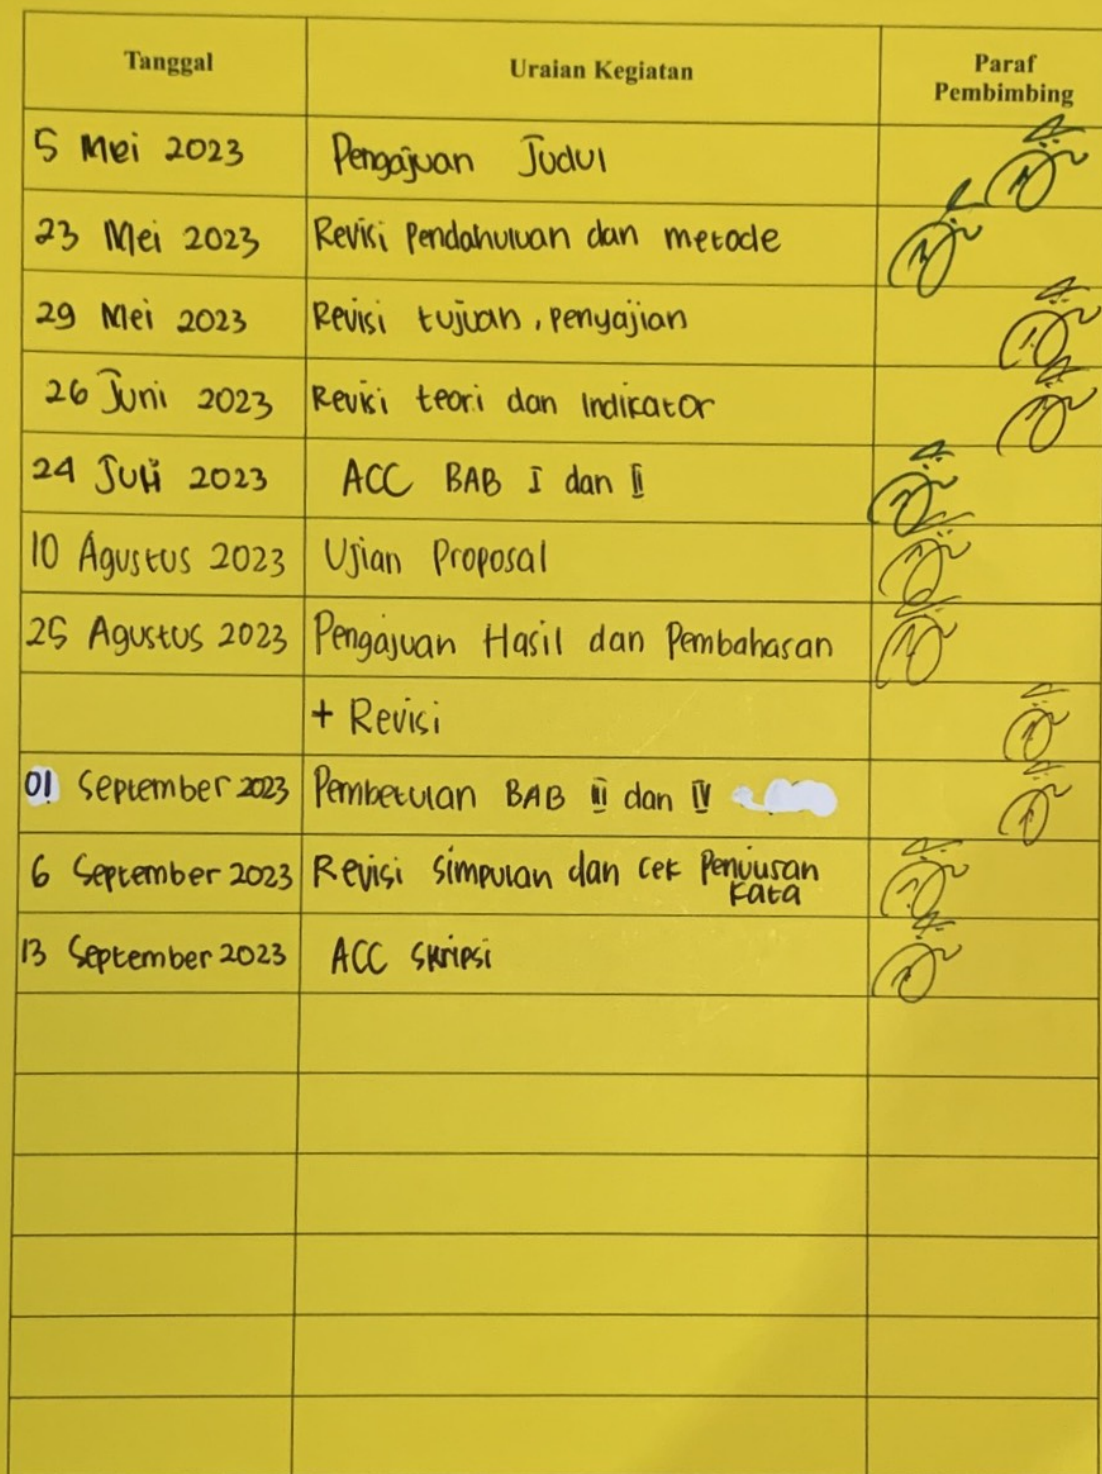 Tanggal Uraian Kegiatan Paraf Pembimbing
5 Mei 2023 Pengajuan Judul
23 Mei 2023 Revisi Pendahuluan dan metode
29 Mei 2023 Revisi tujuan, penyajian
26 Juni 2023 Revisi teori dan Indikator
24 Juli 2023 ACC BAB I dan II
10 Agustus 2023 Ujian Proposal
25 Agustus 2023 Pengajuan Hasil dan Pembahasan
+ Revisi
01 September 2023 Pembetulan BAB III dan IV
6 September 2023 Revisi Simpulan dan cek Penulisan
Kata
13 September 2023 ACC Skripsi